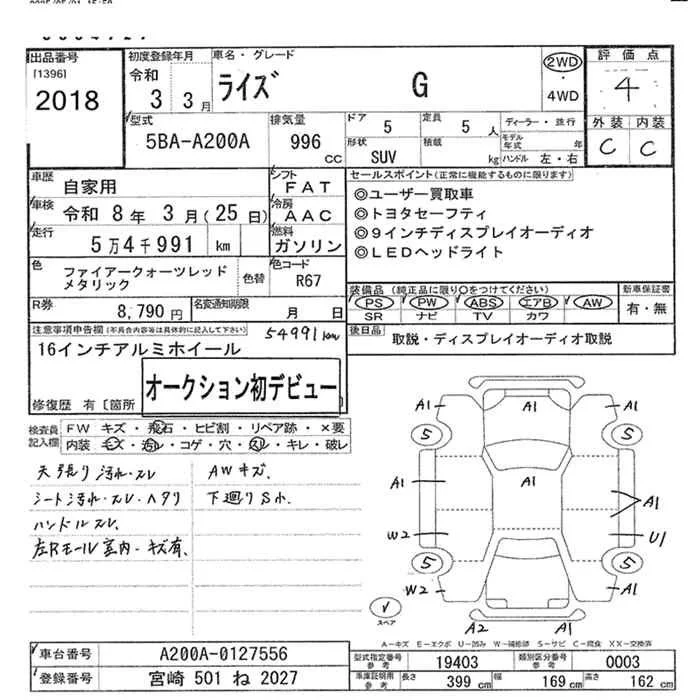 出品番号
[1396]
2018
初度登録年月
令和
3 3月
車名・グレード
ライズ G
2WD
・
4WD
評価点
4
外装 内装
C C
型式
5BA-A200A
排気量
996
CC
ドア
5
定員
5人
形状
SUV
積載
kg
ディーラー・並行
モデル
年式 年
ハンドル 左・右
車歴
自家用
車検
令和 8年 3月(25日)
走行
5万4千991 km
シフト
FAT
冷房
AAC
燃料
ガソリン
セールスポイント(正常に機能するものに限ります)
◎ユーザー買取車
◎トヨタセーフティ
◎9インチディスプレイオーディオ
◎LEDヘッドライト
色
ファイアークォーツレッド
メタリック
色替
色コード
R67
装備品 (純正品に限り○をつけてください)
PS PW ABS エアB AW
SR ナビ TV カワ
新車保証書
有・無
R券
8,790円
名変通知期限
月 日
後日品
取説・ディスプレイオーディオ取説
注意事項申告欄(不具合内容等は具体的に記入して下さい)
54991km
16インチアルミホイール
オークション初デビュー
修復歴 有〔箇所
検査員
記入欄
FW キズ・飛石・ヒビ割・リペア跡・×要
内装 キズ・汚レ・コゲ・穴・スレ・キレ・破レ
天張り汚れ・スレ
シート汚れ・スレ・ヘタリ
ハンドルスレ
左Rモール室内・キズ有
AWキズ.
下廻りS小.
A1 A1 A1
5 5
A1 A1 A1
W2 U1
5 5
W2 A1
A2 A1
スペア
A-キズ E-エクボ U-凹み W-補修跡 S-サビ C-腐食 XX-交換済
車台番号
A200A-0127556
登録番号
宮崎 501 ね 2027
型式指定番号
参考
19403
類別区分番号
参考
0003
車庫証明用
参考
長さ
399 cm
幅
169 cm
高さ
162 cm